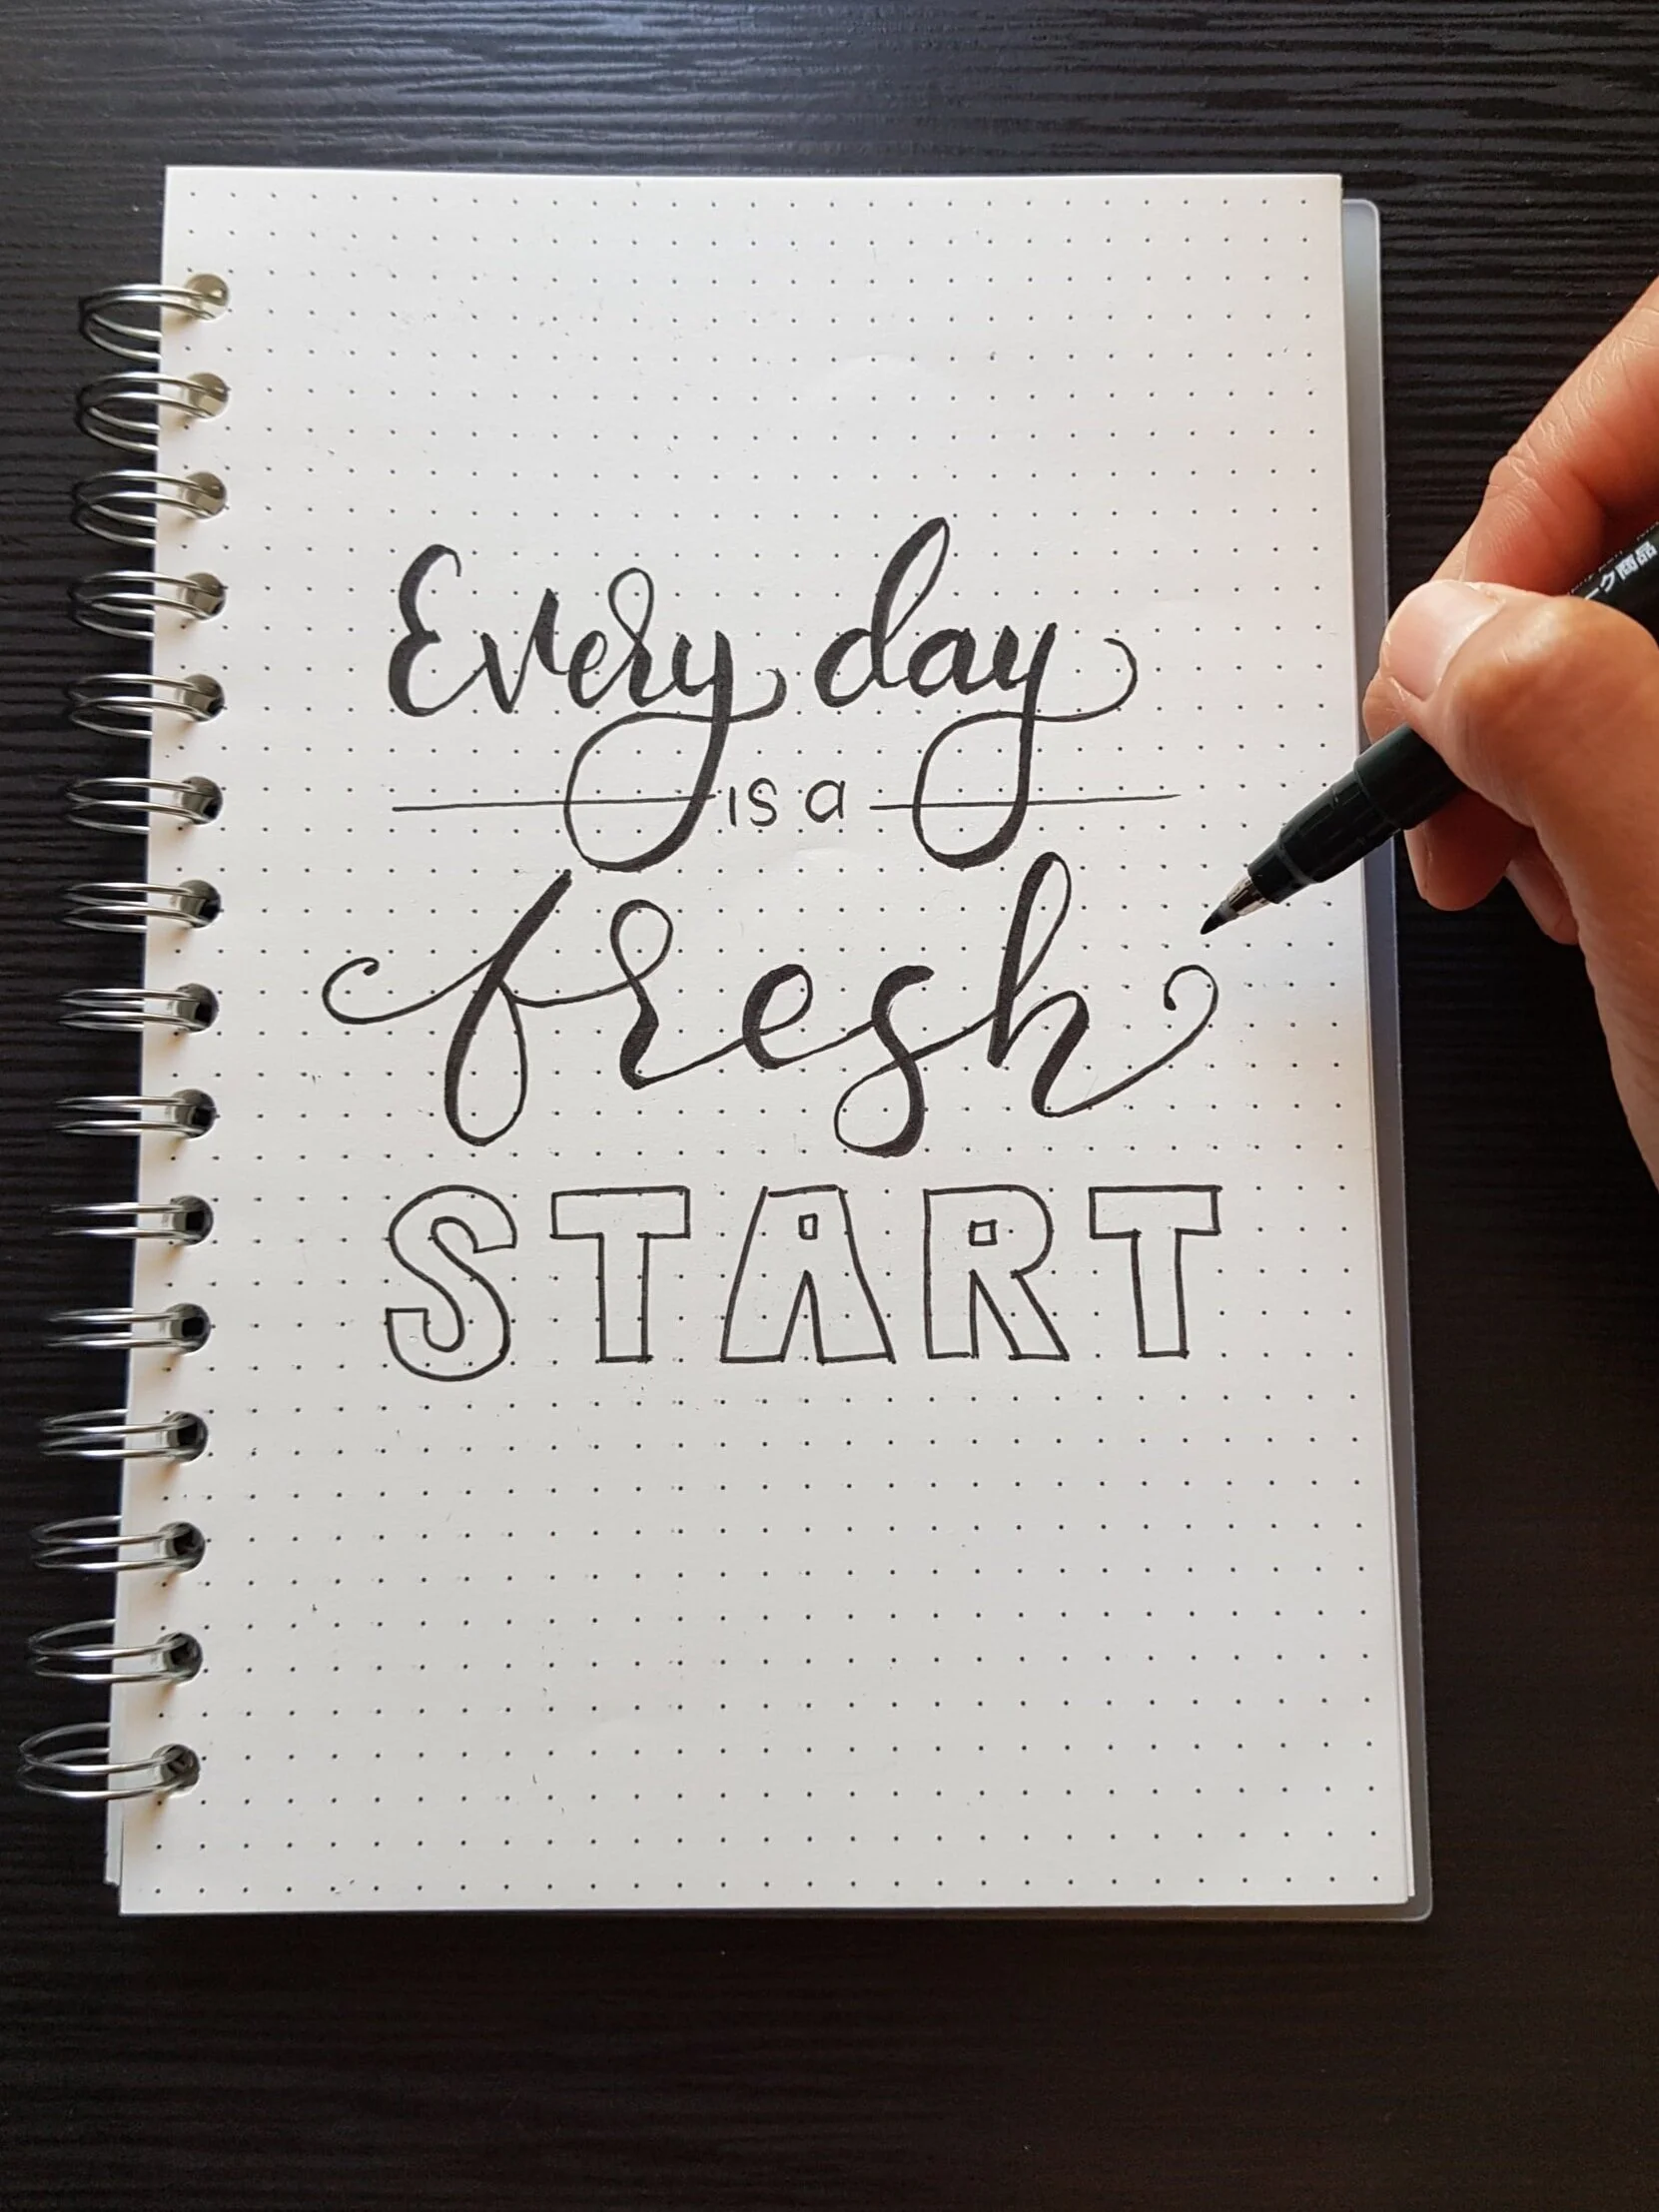 Every day
is a
fresh
START
ク商品